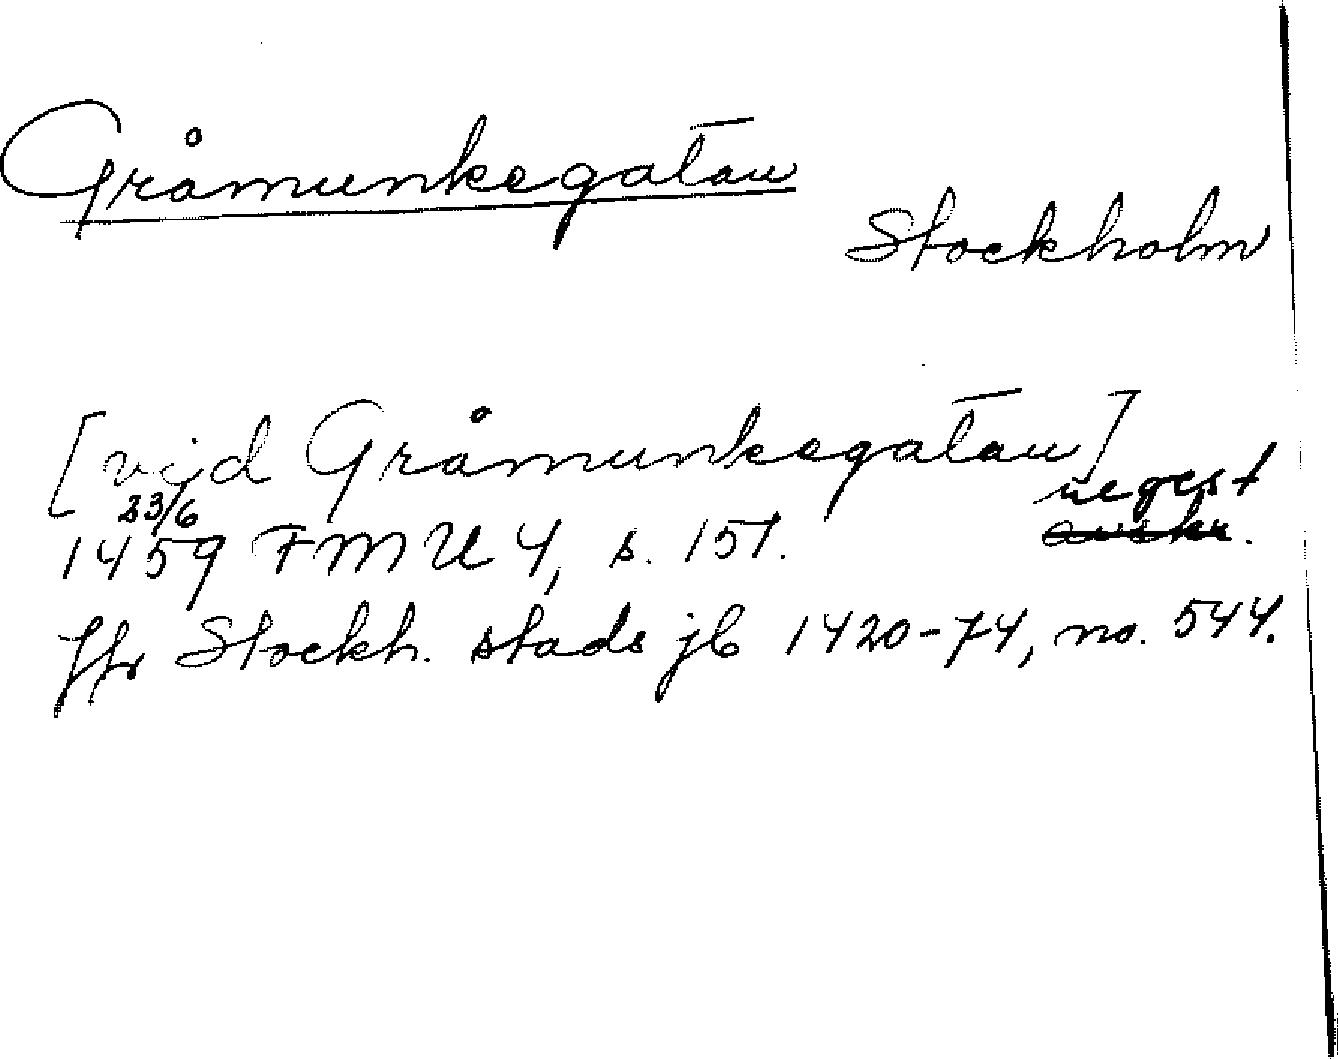 Gråmunkegatan
Stockholm
[vid Gråmunkegatan]
regest
23/6
1459 FMU 4, s. 151. avskr.
Jfr Stockh. stads jb 1420-74, no. 544.